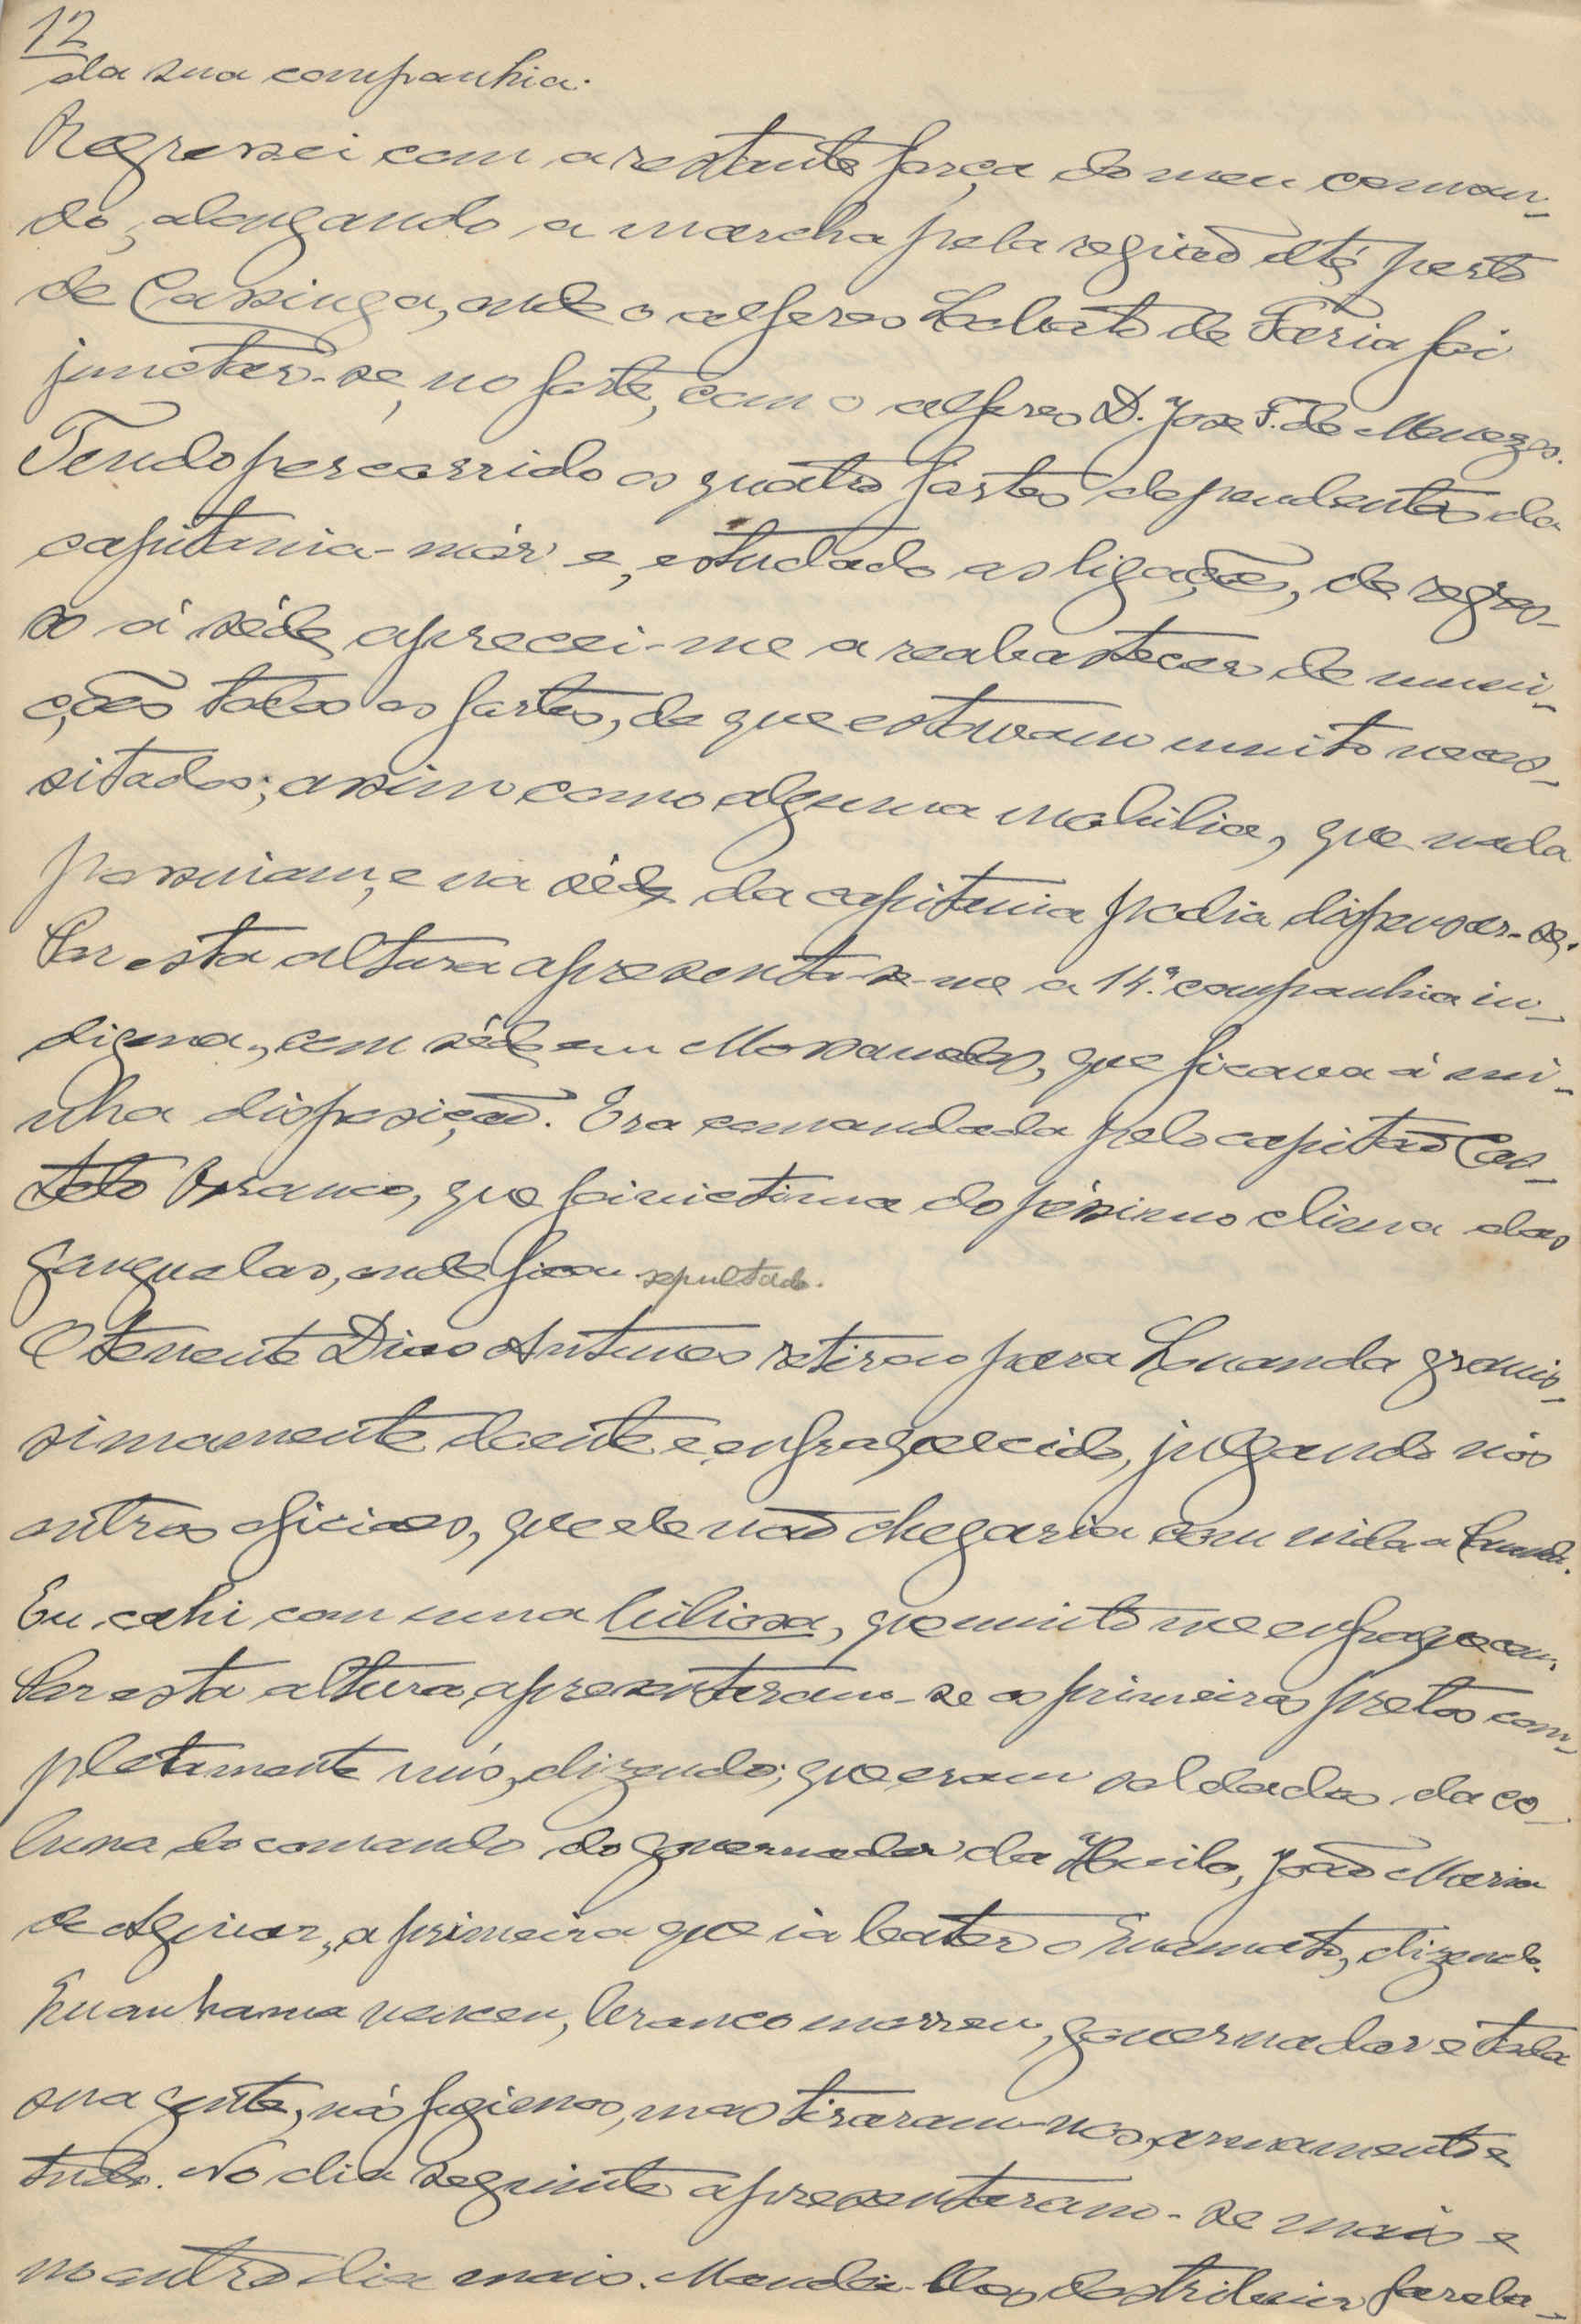 12
da sua companhia.
Regressei com a restante força do meu coman-
do, alongando a marcha pela região até perto
de Cassinga, onde o alferes Lobato de Faria foi
junctar-se, no forte, com o alferes D. José F. de Menezes.
Tendo percorrido os quatro fortes dependentes da
capitania-mór e, estudado as ligações, de regres-
so á séde, aprecei-me a reabastecer de muni-
ções todos os fortes, de que estavam muito neces-
sitados; assim como alguma mobilia, que nada
possuiam, e na séde da capitania podia dispensar-se.
Por esta altura apresenta-se-me a 14.ª companhia in-
digena, com séde em Mossamedes, que ficava á mi-
nha disposição. Era comandada pelo capitão Cas-
telo Branco, que foi victima do péssimo clima das
ganguelas, onde ficou sepultado.
O tenente Dias Antunes retirou para Luanda gravis-
simamente doente e enfraquecido, julgando nós
outros oficiaes, que ele não chegaria com vida a Luanda.
Eu cahi com uma biliosa, que muito me enfraqueceu.
Por esta altura apresentaram-se os primeiros pretos com-
pletamente nús, dizendo; que eram soldados da co-
luna do comando do governador da Huila, João Maria
de Aguiar, a primeira que ia bater o Cuamato, dizendo.
Cuanhama venceu, branco morreu, governador e toda
sua gente, nós fugimos, mas tiraram-nos, armamento e
tudo. No dia seguinte apresentaram-se mais e
no outro dia mais. Mandei-lhes destribuir farda-